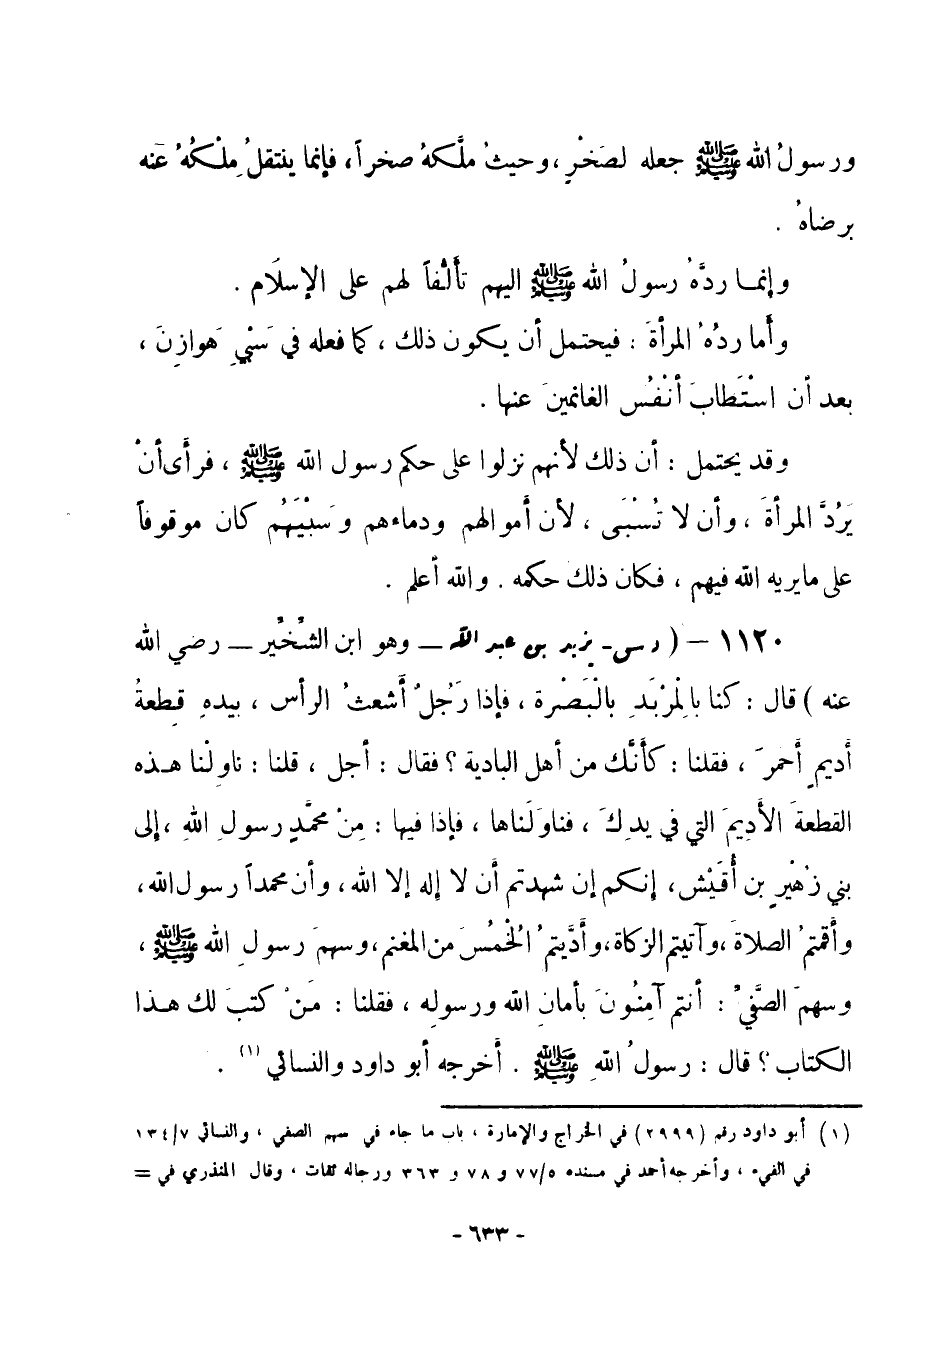 ورسولُ الله ﷺ جعله لصَخْرٍ ، وحيثُ ملَّكهُ صخراً ، فإنما ينتقلُ مِلْكُهُ عَنه
برضاهُ .
وإنما ردَّهُ رسولُ الله ﷺ اليهم تأَلُّفاً لهم على الإسلَام .
وأَما ردُهُ المرأةَ : فيحتمل أن يكون ذلك ، كما فعله في سَبْيِ هَوازِنَ ،
بعد أن اسْتَطابَ أنْفُس الغانمينَ عنها .
وقد يحتمل : أن ذلك لأنهم نزلوا على حكم رسول الله ﷺ ، فرأَى أنْ
يَرُدَّ المرأةَ ، وأن لا تُسْبَى ، لأن أَموالهم ودماءهم وسَبْيَهُم كان موقوفاً
على مايريه الله فيهم ، فكان ذلك حكمه . والله أعلم .
١١٢٠ – ( رسى - يزيد بن عبد الله – وهو ابن الشِّخِّير – رضي الله
عنه ) قال : كنا بالِمْرْبَدِ بالْبَصْرة ، فإذا رَجُلٌ أَشعثُ الرأس ، بيدهِ قطعةُ
أَديمٍ أَحمرَ ، فقلنا : كأَنَّك من أهل البادية ؟ فقال : أجل ، قلنا : ناوِلْنا هذه
القطعةَ الأَدِيمَ التي في يدِكَ ، فناوَلَناها ، فإذا فيها : مِنْ محمَّدٍ رسولِ اللهِ ، إلى
بني زُهْيرٍ بن أُقَيْش ، إنكم إن شهدتم أَن لا إله إلا الله ، وأن محمداً رسول الله ،
وأَقمتمُ الصلاةَ ، وآتيتم الزكاة ، وأَدَّيتمُ الْخُمُسَ من المغنم ، وسهمَ رسولِ الله ﷺ ،
وسهمَ الصَّفيِّ : أنتم آمِنُونَ بأمانِ الله ورسولِه ، فقلنا : مَنْ كتبَ لك هذا
الكتاب ؟ قال : رسولُ اللهِ ﷺ . أَخرجه أبو داود والنسائي (١) .
(١) أبو داود رقم (٢٩٩٩) في الخراج والإمارة ، باب ما جاء في سهم الصفي ، والنسائي ١٣٤/٧
في الفيء ، وأخرجه أحمد في مسنده ٧٧/٥ و ٧٨ و ٣٦٣ ورجاله ثقات ، وقال المنذري في =
- ٦٣٣ -